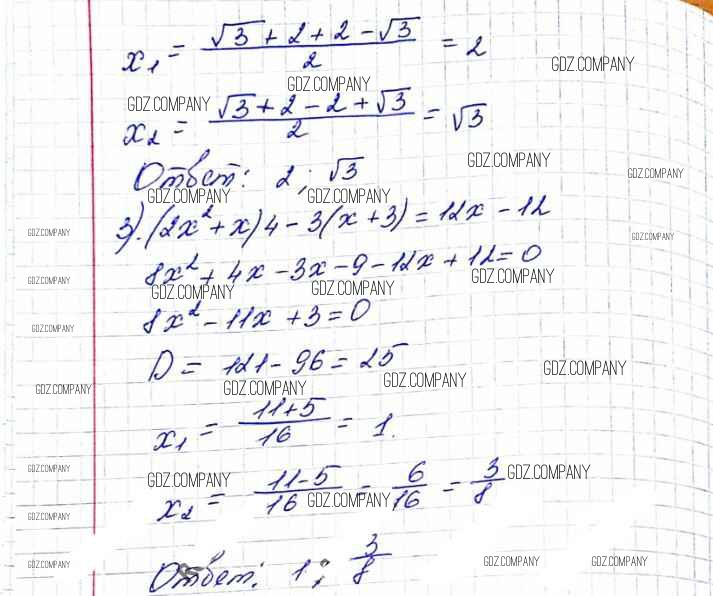 x₁ = (√3 + 2 + 2 − √3)/2 = 2
GDZ.COMPANY
GDZ.COMPANY
GDZ.COMPANY
x₂ = (√3 + 2 − 2 + √3)/2 = √3
GDZ.COMPANY
Ответ: 2; √3
GDZ.COMPANY
GDZ.COMPANY GDZ.COMPANY
3). (2x² + x)4 − 3(x + 3) = 12x − 12
GDZ.COMPANY GDZ.COMPANY
8x² + 4x − 3x − 9 − 12x + 12 = 0
GDZ.COMPANY GDZ.COMPANY GDZ.COMPANY GDZ.COMPANY
8x² − 11x + 3 = 0
GDZ.COMPANY
D = 121 − 96 = 25
GDZ.COMPANY GDZ.COMPANY GDZ.COMPANY GDZ.COMPANY
x₁ = (11+5)/16 = 1.
GDZ.COMPANY GDZ.COMPANY GDZ.COMPANY
x₂ = (11−5)/16 = 6/16 = 3/8
GDZ.COMPANY GDZ.COMPANY
Ответ: 1; 3/8
GDZ.COMPANY GDZ.COMPANY GDZ.COMPANY